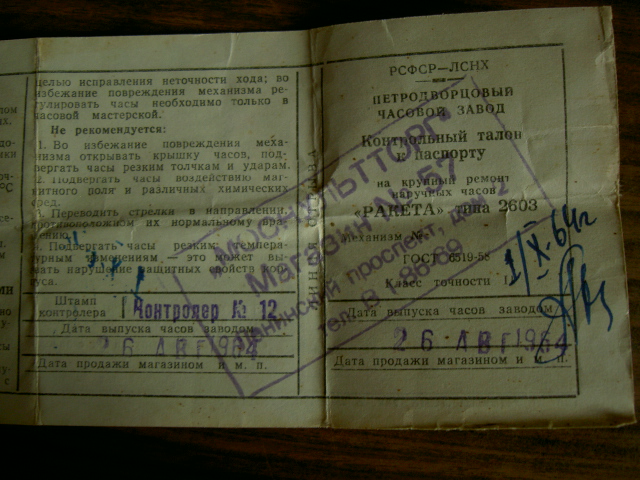 целью исправления неточности хода; во
избежание повреждения механизма ре-
гулировать часы необходимо только в
часовой мастерской.
Не рекомендуется:
1. Во избежание повреждения меха-
низма открывать крышку часов, под-
вергать часы резким толчкам и ударам.
2. Подвергать часы воздействию маг-
нитного поля и различных химических
сред.
3. Переводить стрелки в направлении,
противоположном их нормальному вра-
щению.
4. Подвергать часы резким темпера-
турным изменениям, это может вы-
звать нарушение защитных свойств кор-
пуса.
Штамп
контролера
Контролер № 12
Дата выпуска часов заводом
26 АВГ 1964
Дата продажи магазином и м. п.
ЛИНИЯ
РСФСР—ЛСНХ
ПЕТРОДВОРЦОВЫЙ
ЧАСОВОЙ ЗАВОД
Контрольный талон
к паспорту
на крупный ремонт
наручных часов
«РАКЕТА» типа 2603
механизм №
ГОСТ 6519-58
Класс точности 1
Дата выпуска часов заводом
26 АВГ 1964
Дата продажи магазином и м. п.
Магазин № 57
Ленинский проспект, дом 2
тел. В 1-86-69
1/IX-64г